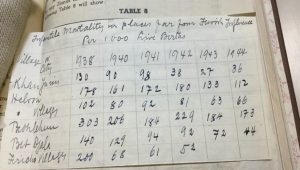 Table 8 will show
TABLE 8
Infantile Mortality in places far from Jewish Influence
Per 1000 Live Births
Village or City 1938 1940 1941 1942 1943 1944
Khan Yunis 130 90 98 38 27 36
Hebron City 178 161 172 180 133 112
" Villages 102 80 92 81 63 66
Bethlehem 303 206 184 229 184 173
Beit Jala 140 129 94 92 72 44
Villages 200 68 61 52